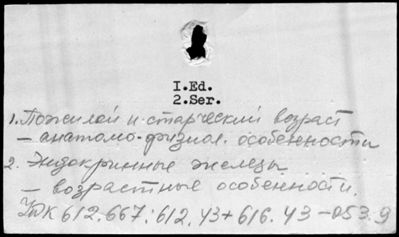 I.Ed.
2.Ser.
1. Пожилой и старческий возраст
— анатомо-физиол. особенности
2. Эндокринные железы
— возрастные особенности.
УДК 612.667:612.43+616.43-053.9